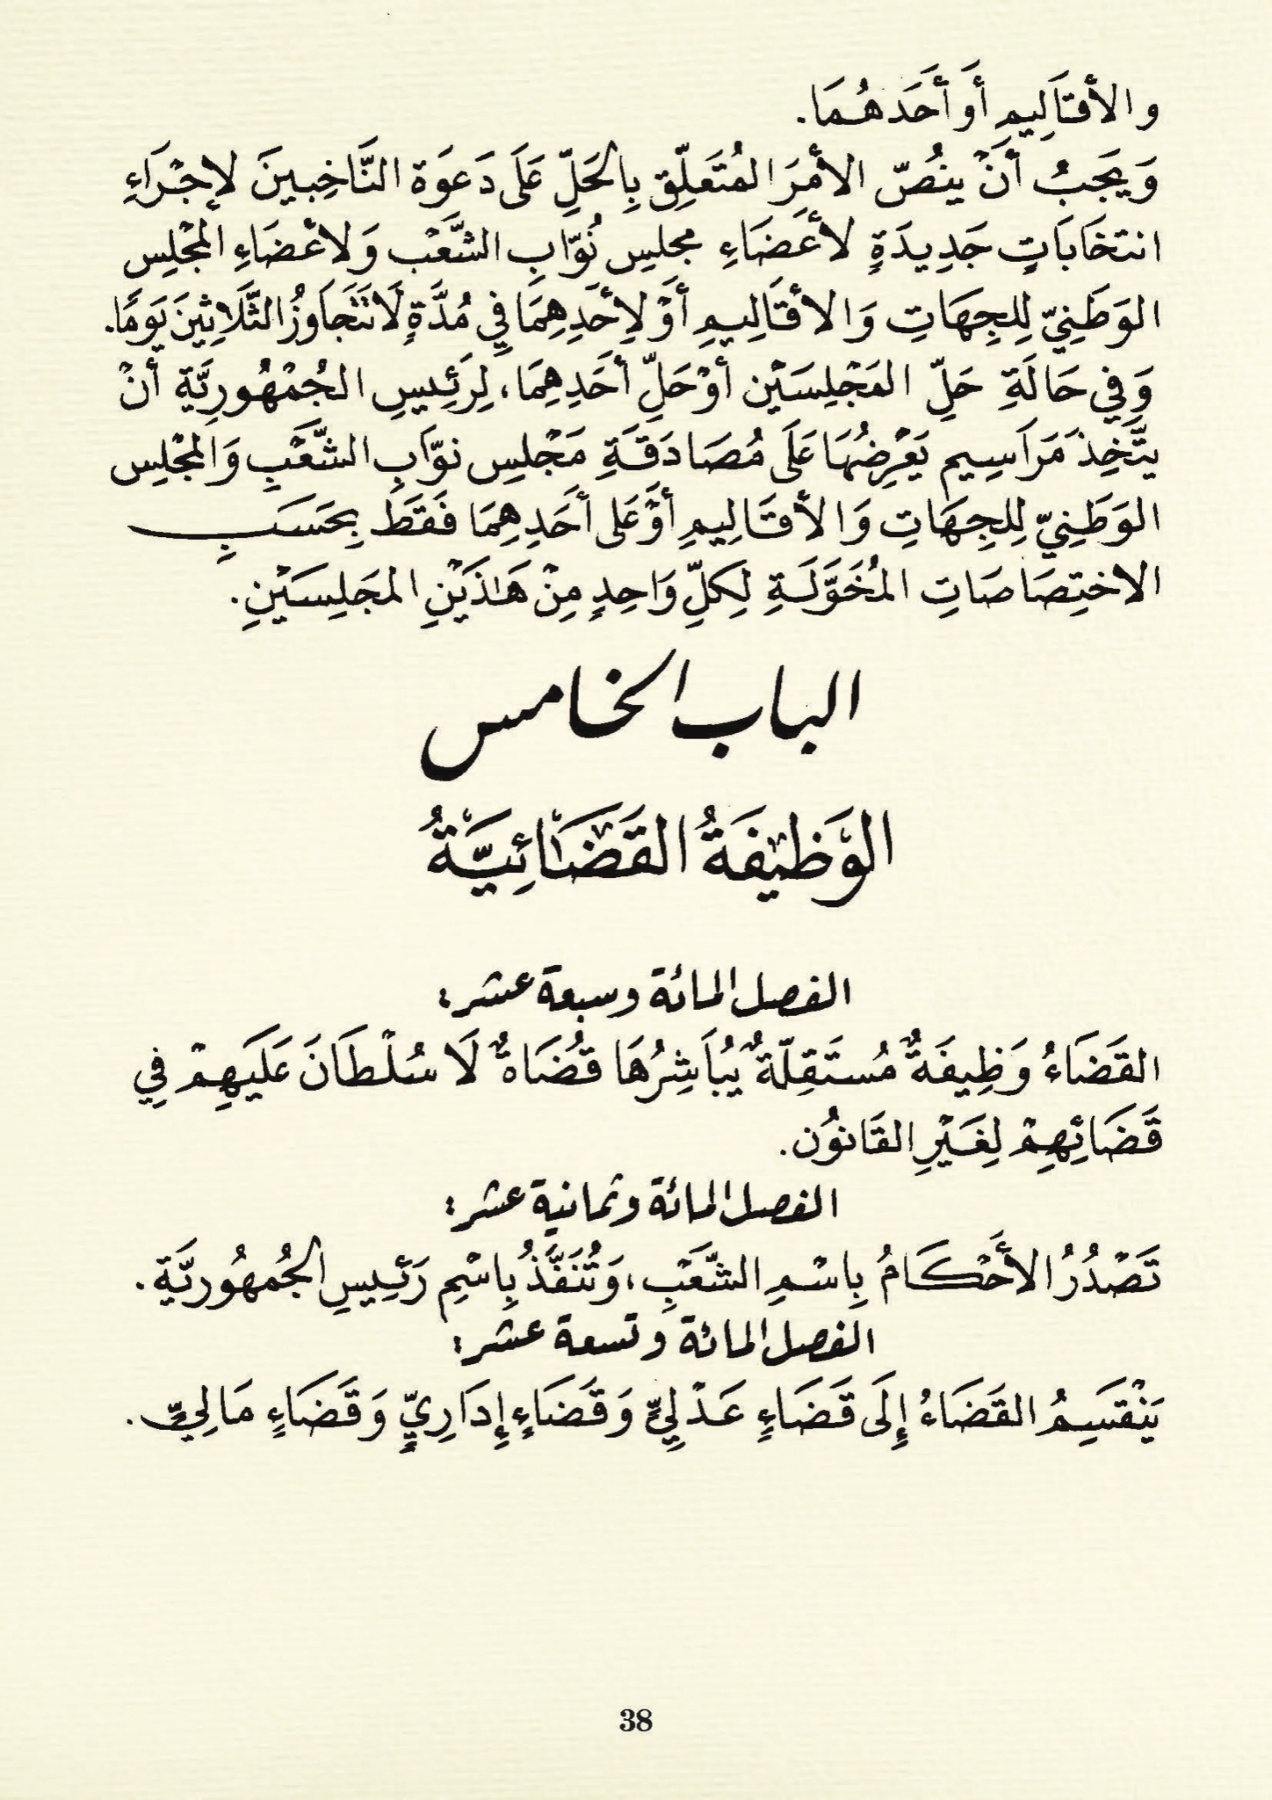 والأقَالِيمِ أَو أَحَدهُمَا.
وَيَجَبُ أنْ ينُصّ الأمْرَ المُتَعَلِّق بِالحَلِّ عَلَى دَعوَة النَّاخِبينَ لإجْرَاءِ
انتخَابَاتٍ جَدِيدَةٍ لأعَضَاءِ مجلسِ نُوّابِ الشَّعْب وَلأعْضَاءِ المَجْلِسِ
الوَطَنِيّ لِلجِهَاتِ وَالأقَالِيمِ أَوْ لِأحَدِهِمَا فِي مُدَّةٍ لَا تَتَجَاوزُ الثَّلَاثِينَ يَومًا.
وَفِي حَالَةِ حَلِّ المَجْلِسَيْنِ أوْ حَلِّ أحَدِهِمَا، لِرَئِيسِ الجُمْهُورِيَّةِ أنْ
يتَّخِذَ مَرَاسِيم يَعْرِضُهَا عَلَى مُصَادَقَةِ مَجْلِسِ نوّابِ الشَّعْبِ وَالمَجْلِسِ
الوَطَنِيّ لِلجِهَاتِ وَالأقَالِيمِ أوْ عَلى أحَدِهِمَا فَقَطْ بِحَسَبِ
الاختِصَاصَاتِ المُخَوَّلَةِ لِكلِّ وَاحِدٍ مِنْ هَذَيْنِ المَجلِسَيْنِ.
الباب الخامس
الوَظيفَةُ القَضَائِيَّةُ
الفصل المائة وسبعة عشر:
القَضَاءُ وَظِيفَةٌ مُستَقِلّةٌ يُبَاشِرُهَا قُضَاةٌ لَا سُلْطَانَ عَلَيهِمْ فِي
قَضَائِهِمْ لِغَيْرِ القَانوُن.
الفصل المائة وثمانية عشر:
تَصْدُرُ الأَحْكَامُ بِاسْمِ الشَّعْبِ، وَتُنَفَّذُ بِاسْمِ رَئِيسِ الجُمهُوريَّةِ.
الفصل المائة وتسعة عشر:
يَنْقَسِمُ القَضَاءُ إِلَى قَضَاءٍ عَدْلِيٍّ وَقَضَاءٍ إِدَارِيٍّ وَقَضَاءٍ مَالِيٍّ.
38